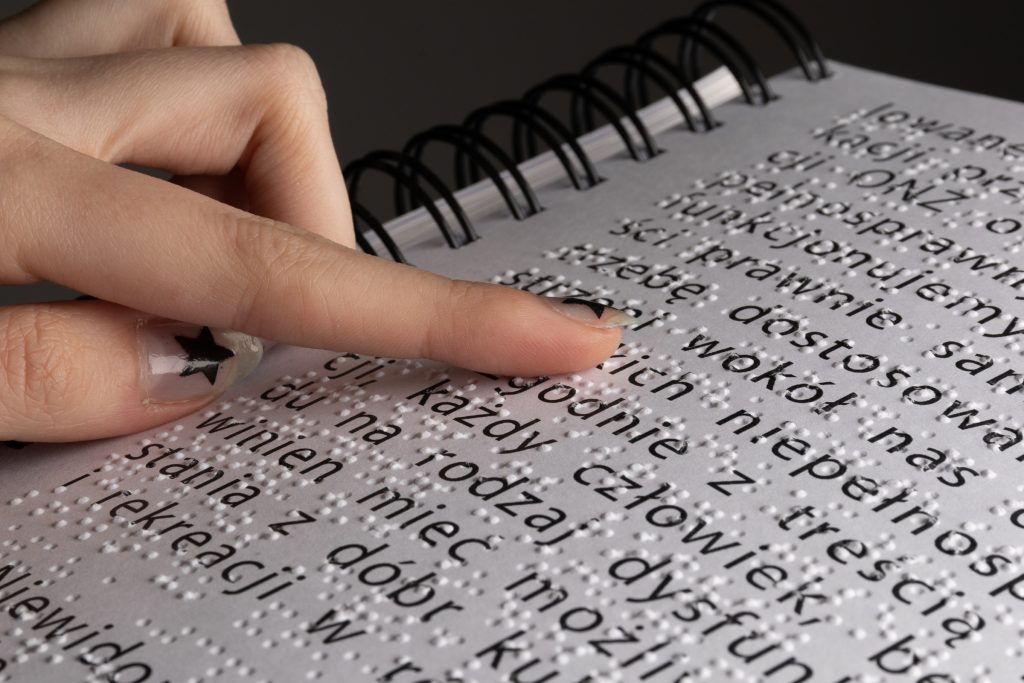 lowane
kacji prz
cji ONZ o
pełnosprawn
funkcjonujemy
ści prawnie san
trzebę dostosowa
strzeni wokół nas
kich niepełnosp
zgodnie z treścią
cji, każdy człowiek, be
du na rodzaj dysfun
winien mieć możliw
stania z dóbr ku
i rekreacji w r
Niewido